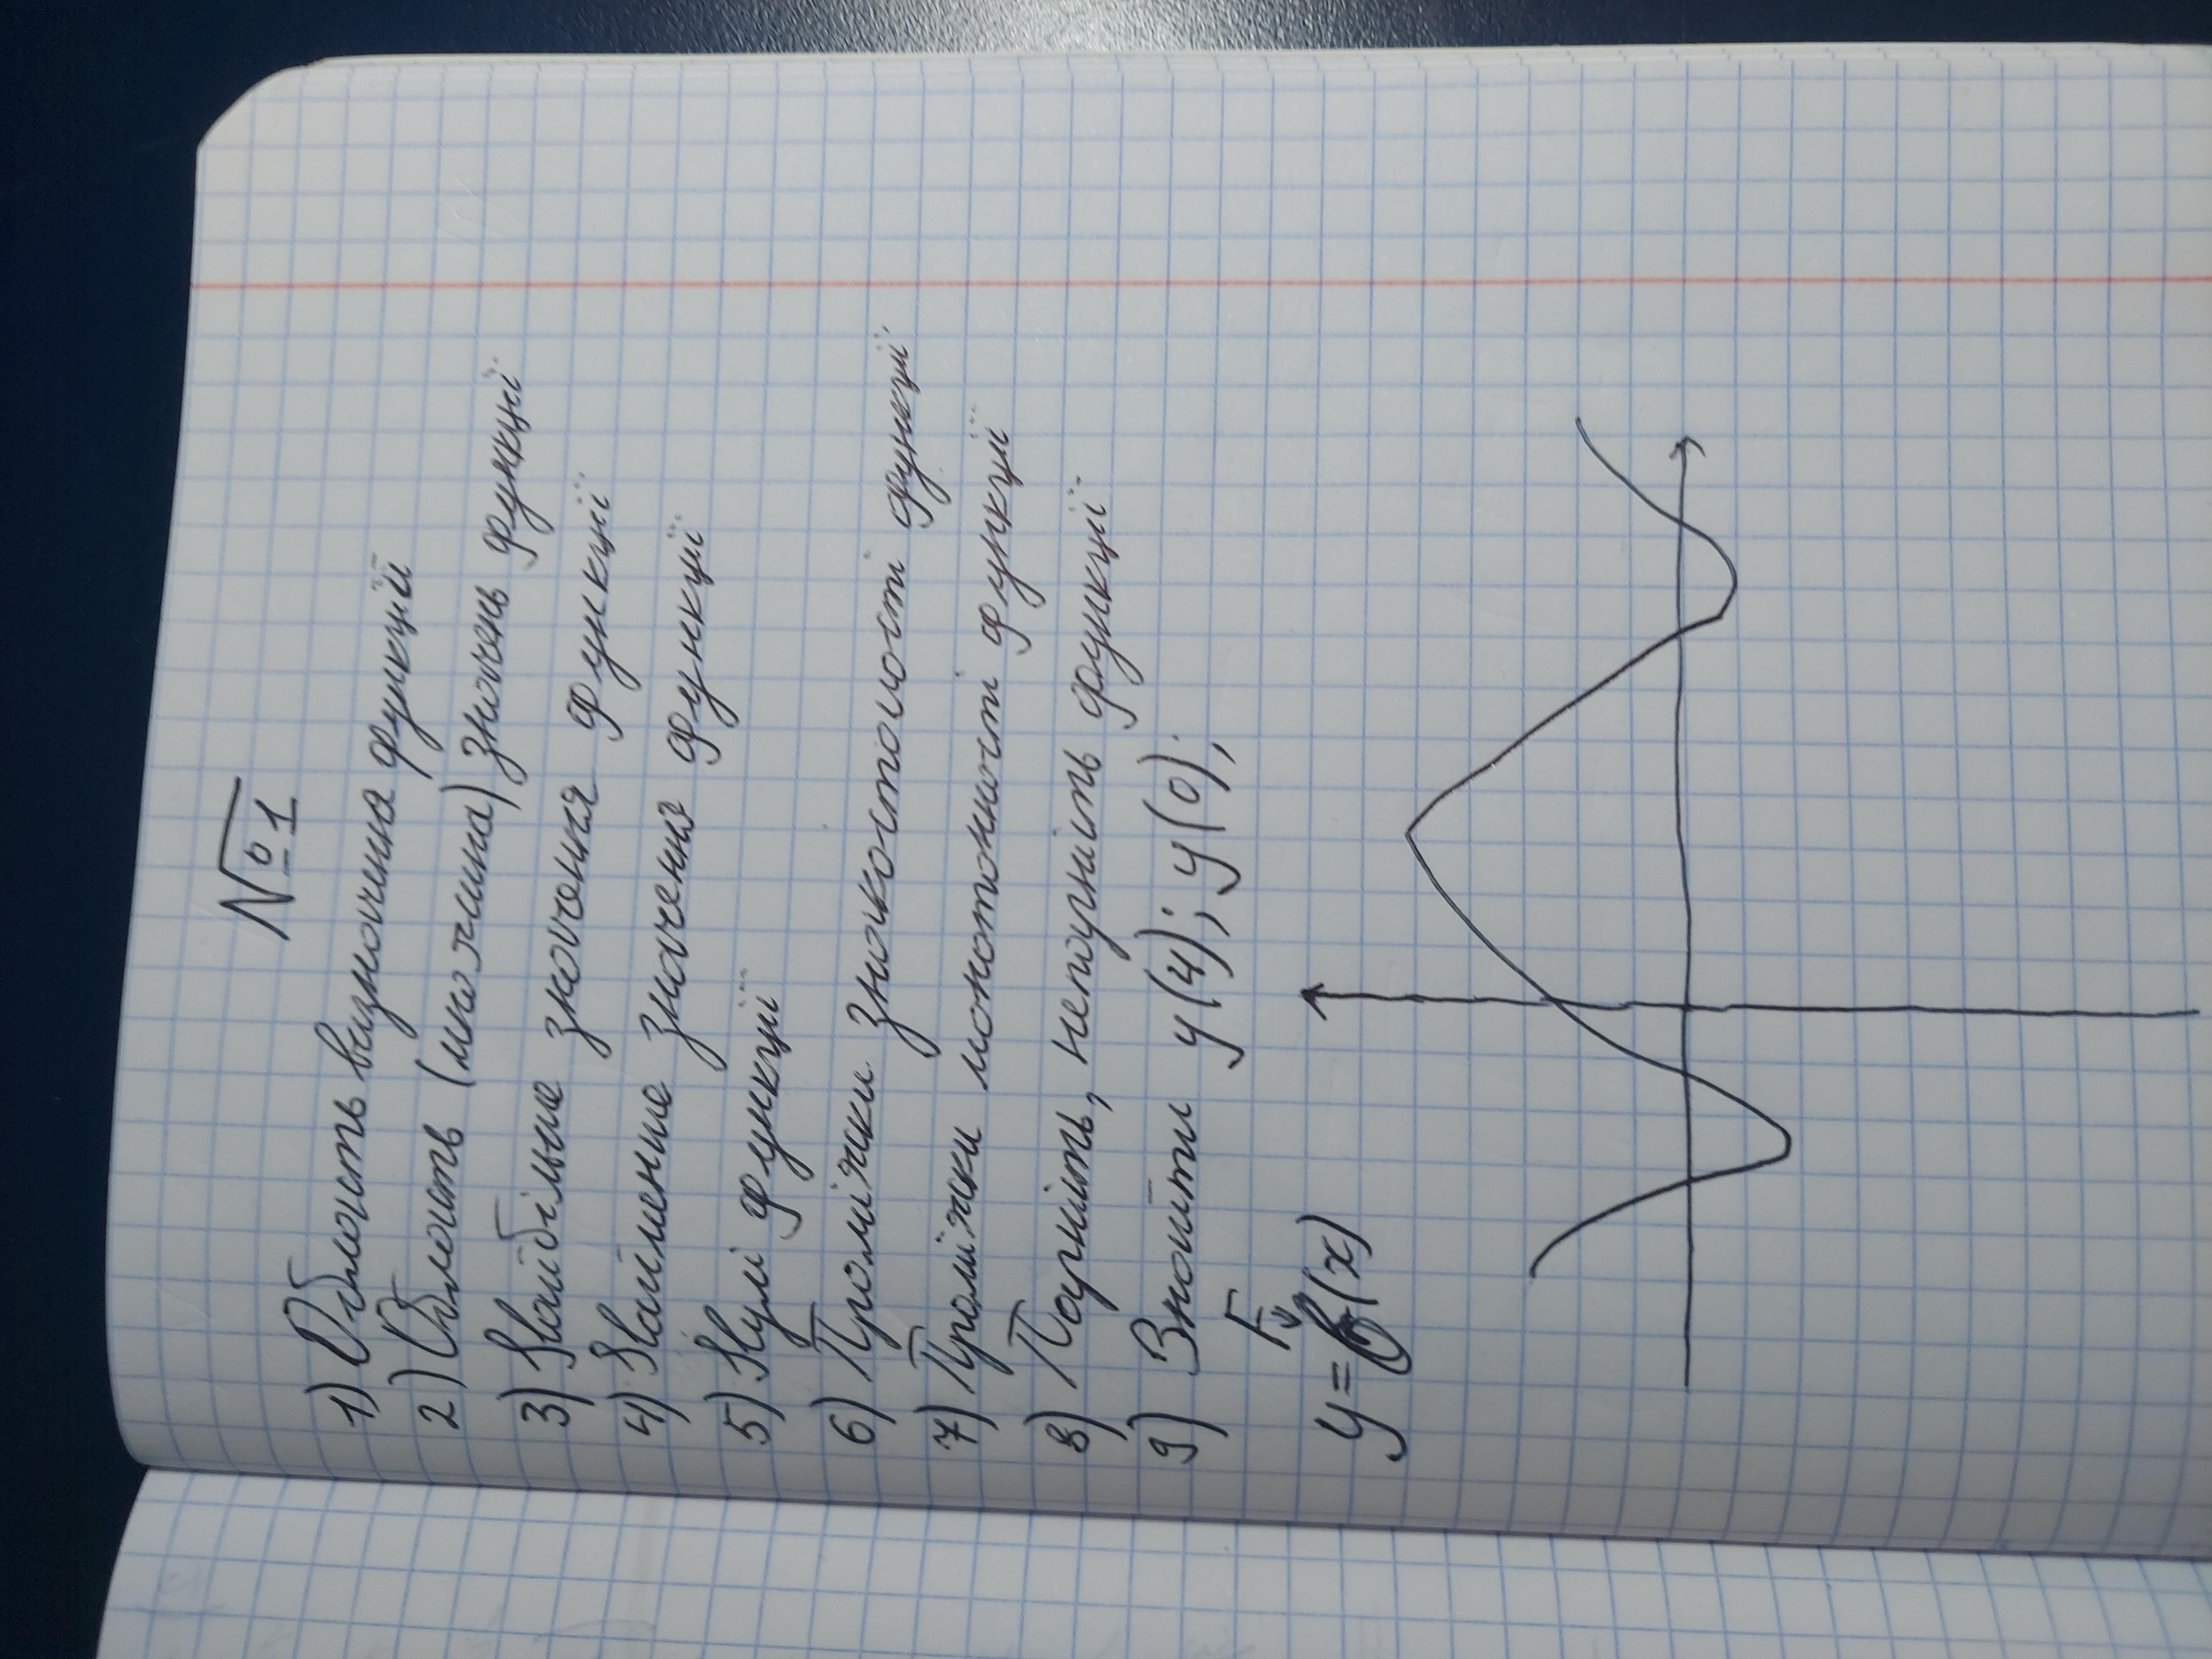 №1
1) Область визначення функції
2) Область (множина) значень функції
3) Найбільше значення функції
4) Найменше значення функції
5) Нулі функції
6) Проміжки знакосталості функції
7) Проміжки монотонності функції
8) Парність, непарність функції
9) Знайти y(4); y(0);
F
y=f(x)